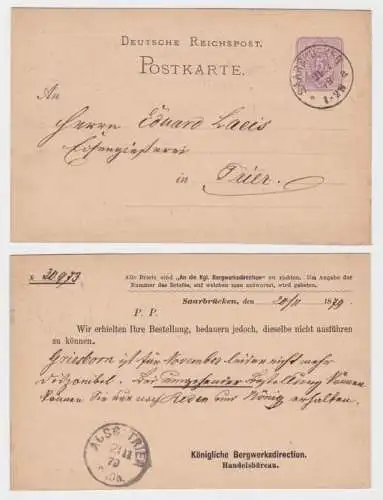 DEUTSCHE REICHSPOST.
POSTKARTE.
An
Herrn Eduard Laeis
Eisengiesserei
in Trier.
№ 30973
Alle Briefe sind „An die Kgl. Bergwerksdirection" zu richten. Um Angabe der
Nummer des Briefes, auf welchen man antwortet, wird gebeten.
Saarbrücken, den 20/11 1879
P. P.
Wir erhielten Ihre Bestellung, bedauern jedoch, dieselbe nicht ausführen
zu können.
Griesborn ist für November leider nicht mehr
disponibel. Bei umgehender Bestellung können
können Sie nur noch Reden und König erhalten.
AUSG. TRIER
21 11
79
Königliche Bergwerksdirection.
Handelsbüreau.